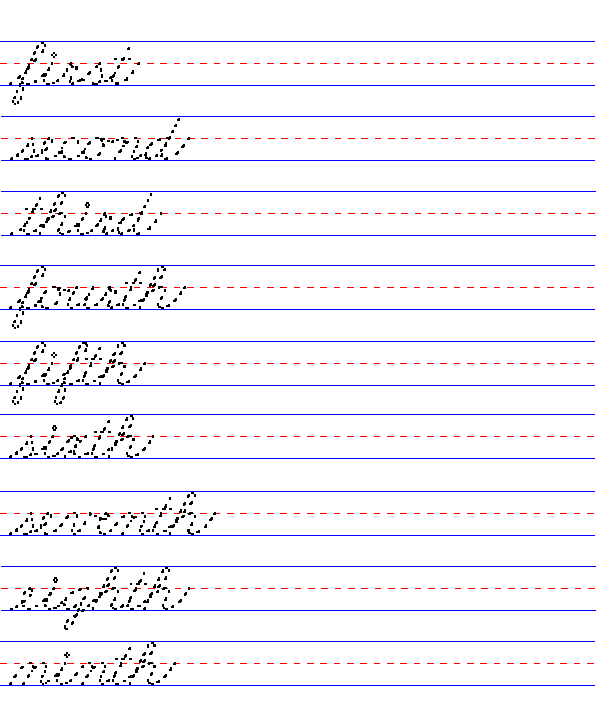 first
second
third
fourth
fifth
sixth
seventh
eighth
ninth